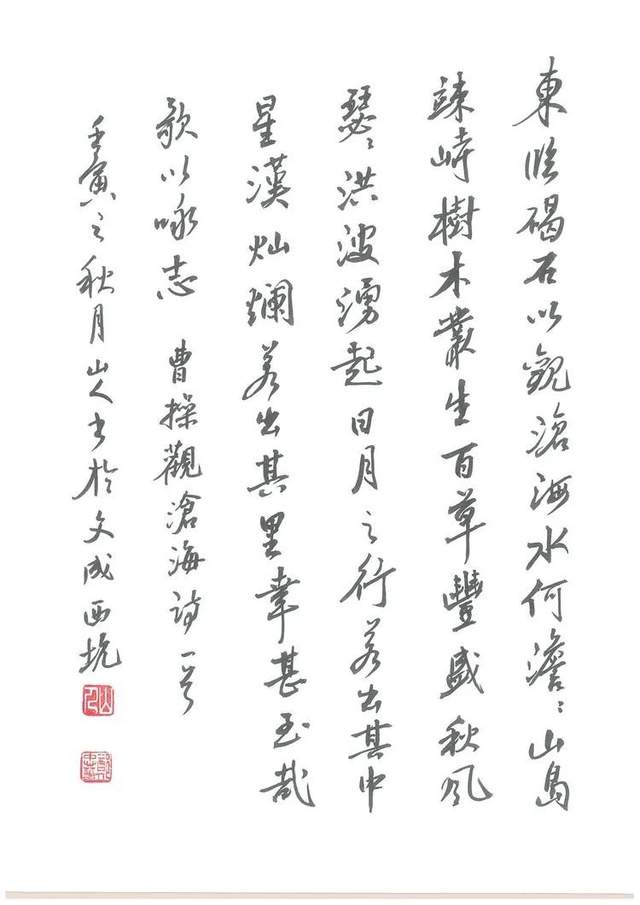 東臨碣石以觀滄海水何澹〻山島
竦峙樹木叢生百草豐盛秋風
瑟〻洪波湧起日月之行若出其中
星漢灿爛若出其里幸甚至哉
歌以咏志 曹操觀滄海詩一首
壬寅之秋月山人书於文成西坑